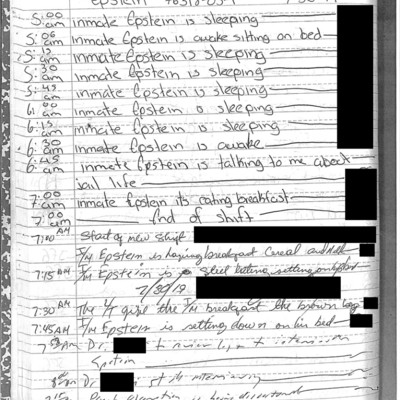 Epstein
5:00 am inmate Epstein is sleeping
5:06 am inmate Epstein is awake sitting on bed
5:15 am inmate Epstein is sleeping
5:30 am inmate Epstein is sleeping
5:45 am inmate Epstein is sleeping
6:00 am inmate Epstein is sleeping
6:15 am inmate Epstein is sleeping
6:30 am inmate Epstein is awake
6:45 am inmate Epstein is talking to me about
jail life
7:00 am inmate Epstein its eating breakfast
7:00 am End of shift
7:00 AM Start of new shift
I/M Epstein is having breakfast Cereal and
7:15 AM I/M Epstein is on his bed
7/30/19
7:30 AM The I/M breakfast the brown bag
7:45 AM I/M Epstein is setting down on his bed
Dr.
Epstein
Dr. interviewing
is being